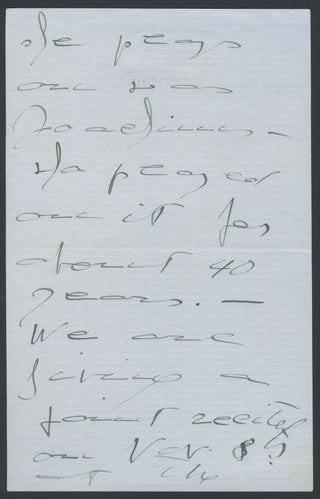 He plays
on was
Joachims –
He played
on it for
about 40
years. –
We are
giving a
joint recital
on Nov. 8th
at the